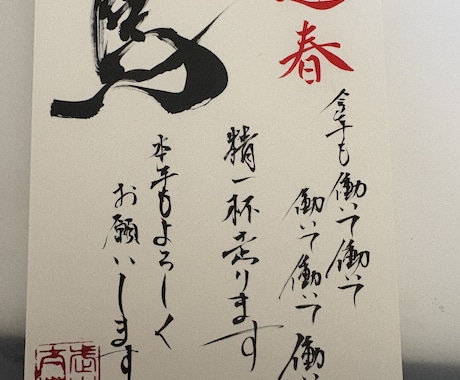 迎春
馬
今年も働いて働いて
働いて働いて働い
精一杯走ります
本年もよろしく
お願いします